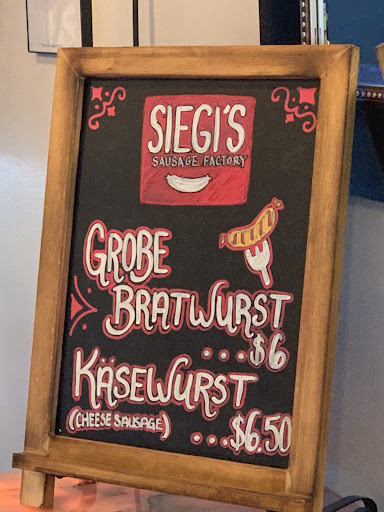 SIEGI'S
SAUSAGE FACTORY
GROBE
BRATWURST
...$6
KÄSEWURST
(CHEESE SAUSAGE) ...$6.50